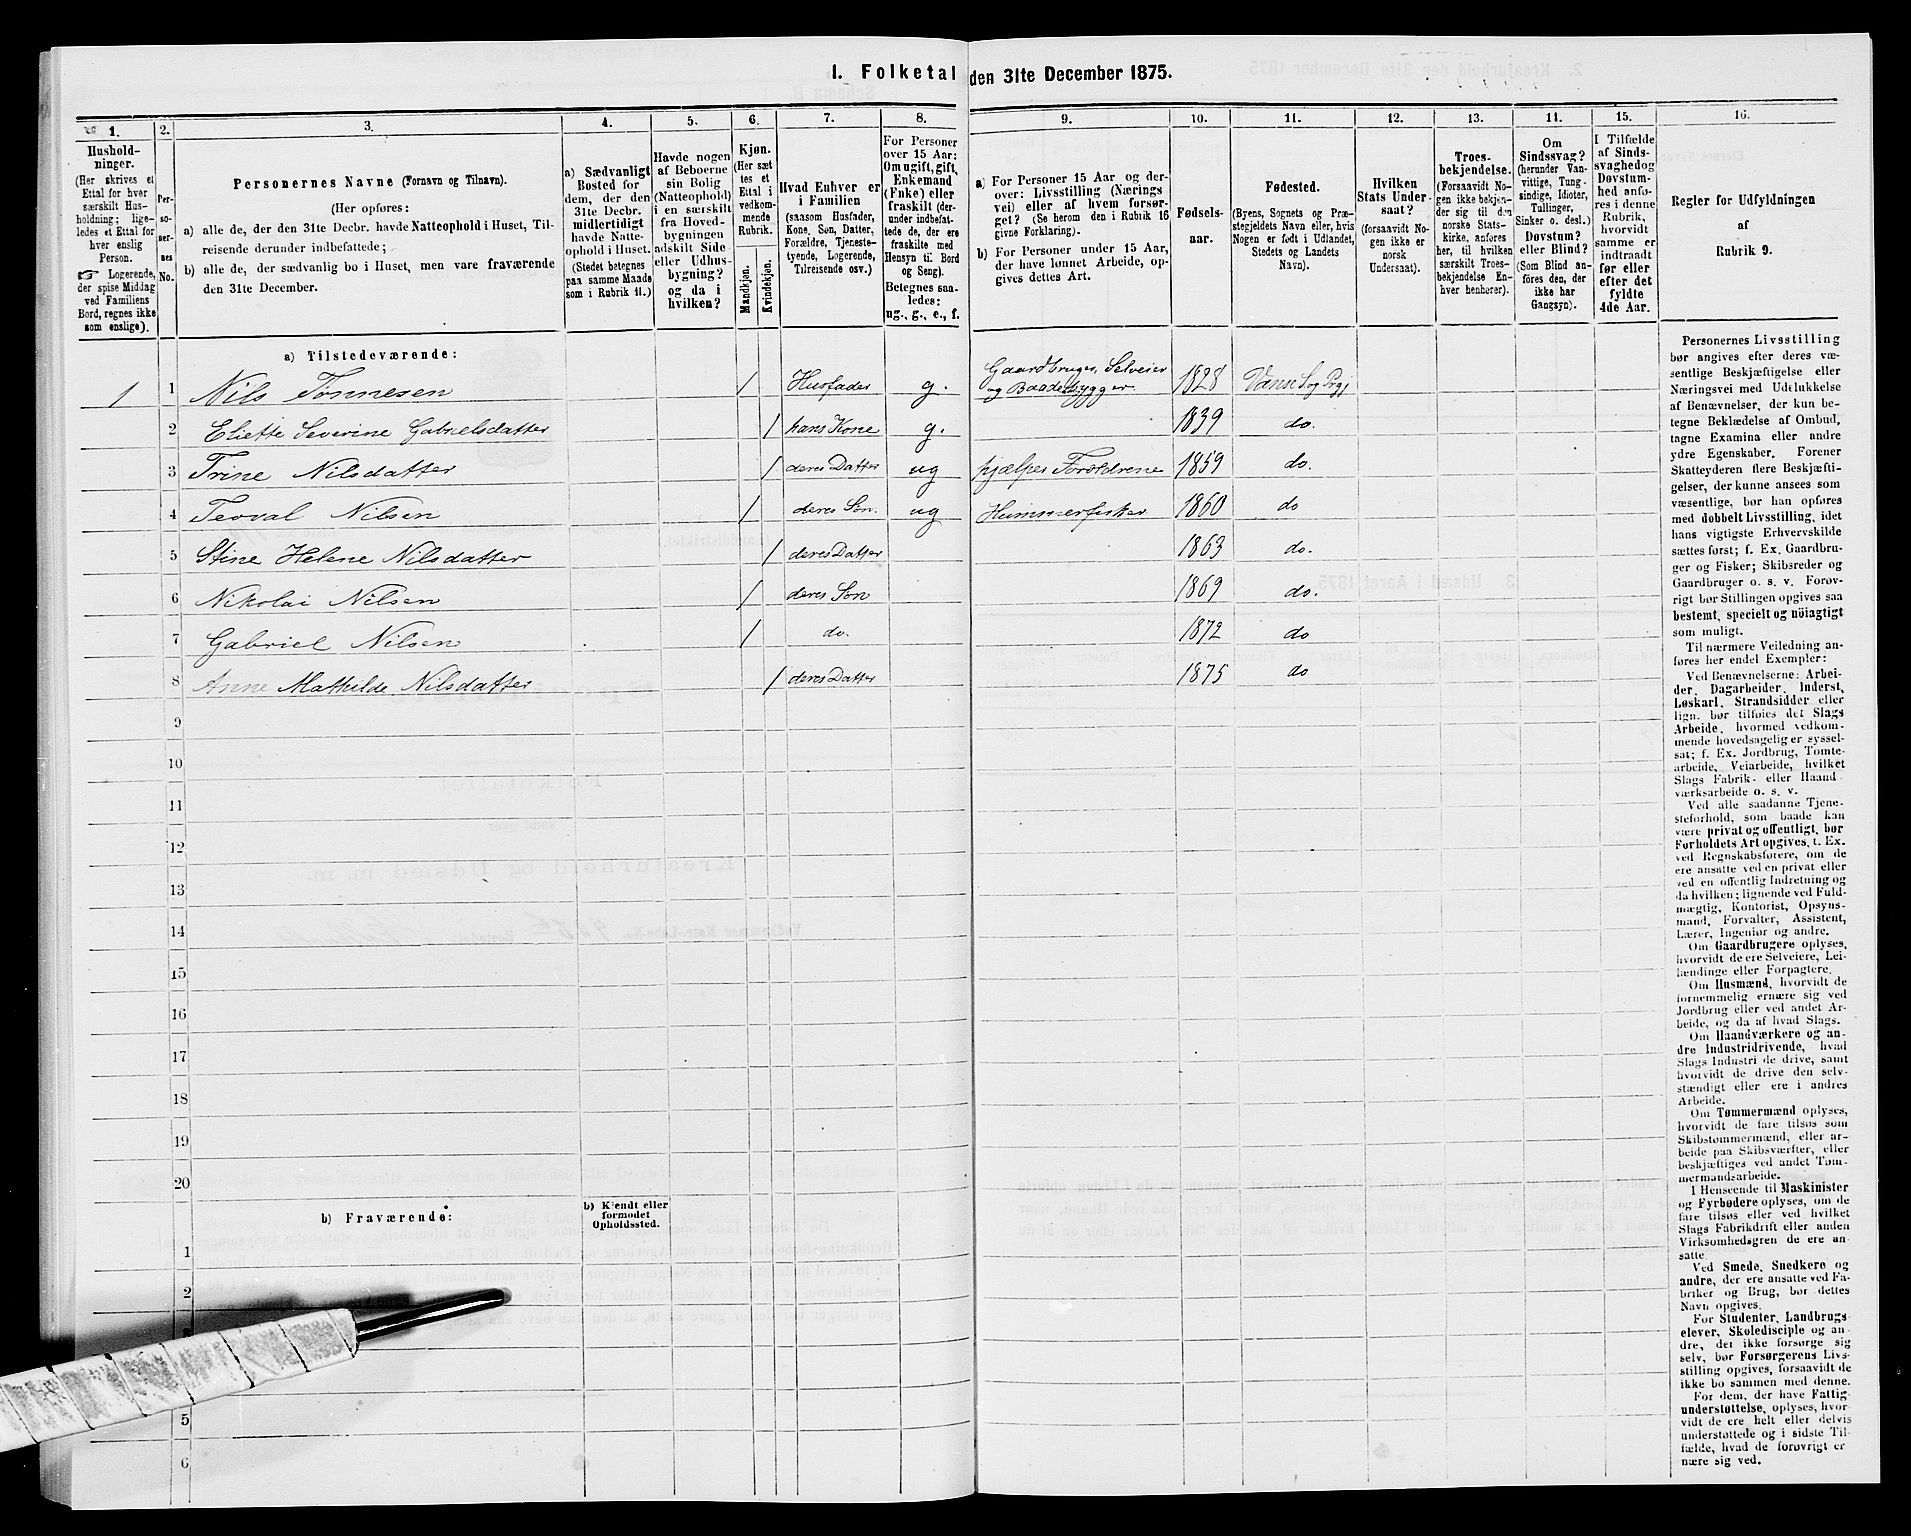 1. Folketal den 31te December 1875.
1.
Hushold-
ninger.
(Her skrives et
Ettal for hver
særskilt Hus-
holdning; lige-
ledes et Ettal for
hver enslig
Person.
☞ Logerende,
der spise Middag
ved Familiens
Bord, regnes ikke
som enslige).
2.
Per-
so-
ner-
nes
No.
3.
Personernes Navne (Fornavn og Tilnavn).
(Her opføres:
a) alle de, der den 31te Decbr. havde Natteophold i Huset, Til-
reisende derunder indbefattede;
b) alle de, der sædvanlig bo i Huset, men vare fraværende
den 31te December.
4.
a) Sædvanligt
Bosted for
dem, der den
31te Decbr.
midlertidigt
havde Natte-
ophold i Huset.
(Stedet betegnes
paa samme Maade
som i Rubrik 11.)
5.
Havde nogen
af Beboerne
sin Bolig
(Natteophold)
i en særskilt
fra Hoved-
bygningen
adskilt Side-
eller Udhus-
bygning?
og da i
hvilken?
6.
Kjøn.
(Her sæt-
tes et
Ettal i
vedkom-
mende
Rubrik.
Mandkjøn.
Kvindekjøn.
7.
Hvad Enhver er
i Familien
(saasom Husfader,
Kone, Søn, Datter,
Forældre, Tjeneste-
tyende, Logerende,
Tilreisende osv.)
8.
For Personer
over 15 Aar:
Om ugift, gift,
Enkemand
(Enke) eller
fraskilt (der-
under indbefat-
tede de, der ere
fraskilte med
Hensyn til Bord
og Seng).
Betegnes saa-
ledes:
ug., g., e., f.
9.
a) For Personer 15 Aar og der-
over: Livsstilling (Nærings-
vei) eller af hvem forsør-
get? (Se herom den i Rubrik 16
givne Forklaring).
b) For Personer under 15 Aar,
der have lønnet Arbeide, op-
gives dettes Art.
10.
Fødsels-
aar.
11.
Fødested.
(Byens, Sognets og Præ-
stegjeldets Navn eller, hvis
Nogen er født i Udlandet,
Stedets og Landets
Navn).
12.
Hvilken
Stats Under-
saat?
(forsaavidt No-
gen ikke er
norsk
Undersaat).
13.
Troes-
bekjendelse.
(Forsaavidt No-
gen ikke bekjen-
der sig til den
norske Stats-
kirke, anføres
her, til hvilken
særskilt Troes-
bekjendelse En-
hver henhører).
14.
Om
Sindssvag?
(herunder Van-
vittige, Tung-
sindige, Idioter,
Tullinger,
Sinker o. desl.)
Døvstum?
eller Blind?
(Som Blind an-
føres den, der
ikke har
Gangsyn).
15.
I Tilfælde
af Sinds-
svaghed og
Døvstum-
hed anfø-
res i denne
Rubrik,
hvorvidt
samme er
indtraadt
før eller
efter det
fyldte
4de Aar.
16.
Regler for Udfyldningen
af
Rubrik 9.
a) Tilstedeværende:
1 1 Nils Tønnesen / Husfader g. Gaardbruger, Selveier
og Baadebygger 1828 Vanse S og Prgj
2 Eliette Severine Gabrielsdatter / hans Kone g. 1839 do.
3 Trine Nilsdatter / deres Datter ug hjælper Forældrene 1859 do.
4 Teoval Nilsen / deres Søn. ug Hummerfisker 1860 do
5 Stine Helene Nilsdatter / deres Datter 1863 do.
6 Nikolai Nilsen / deres Søn 1869 do.
7 Gabriel Nilsen / do. 1872 do
8 Anne Mathilde Nilsdatter / deres Datter 1875 do
9
10
11
12
13
14
15
16
17
18
19
20
b) Fraværende:
b) Kjendt eller
formodet
Opholdssted.
1
2
5
6
Personernes Livsstilling
bør angives efter deres væ-
sentlige Beskjæftigelse eller
Næringsvei med Udelukkelse
af Benævnelser, der kun be-
tegne Beklædelse af Ombud,
tagne Examina eller andre
ydre Egenskaber. Forener
Skatteyderen flere Beskjæfti-
gelser, der kunne ansees som
væsentlige, bør han opføres
med dobbelt Livsstilling, idet
hans vigtigste Erhvervskilde
sættes først; f. Ex. Gaardbru-
ger og Fisker; Skibsreder og
Gaardbruger o. s. v. Forøv-
rigt bør Stillingen opgives saa
bestemt, specielt og nöiagtigt
som muligt.
Til nærmere Veiledning an-
føres her endel Exempler:
Ved Benævnelserne: Arbei-
der, Dagarbeider, Inderst,
Løskarl, Strandsidder eller
lign. bør tilføies det Slags
Arbeide, hvormed vedkom-
mende hovedsagelig er syssel-
sat; f. Ex. Jordbrug, Tomte-
arbeide, Veiarbeide, hvilket
Slags Fabrik- eller Haand-
værksarbeide o. s. v.
Ved alle saadanne Tjene-
steforhold, som baade kan
være privat og offentligt, bør
Forholdets Art opgives, f. Ex.
ved Regnskabsførere, om de
ere ansatte ved en privat eller
ved en offentlig Indretning og
da hvilken; lignende ved Fuld-
mægtig, Kontorist, Opsyns-
mand, Forvalter, Assistent,
Lærer, Ingeniør og andre.
Om Gaardbrugere oplyses,
hvorvidt de ere Selveiere, Lei-
lændinge eller Forpagtere.
Om Husmænd, hvorvidt de
fornemmelig ernære sig ved
Jordbrug eller ved andet Ar-
beide, og da af hvad Slags.
Om Haandværkere og an-
dre Industridrivende, hvad
Slags Industri de drive, samt
hvorvidt de drive den selv-
stændigt eller ere i andres
Arbeide.
Om Tømmermænd oplyses,
hvorvidt de fare tilsøs som
Skibstømmermænd, eller ar-
beide paa Skibsværfter, eller
beskjæftiges ved andet Tøm-
mermandsarbeide.
I Henseende til Maskinister
og Fyrbødere oplyses, om de
fare tilsøs eller ved hvilket
Slags Fabrikdrift eller anden
Virksomhedsgren de ere an-
satte.
Ved Smede, Snedkere og
andre, der ere ansatte ved Fa-
briker og Brug, bør dettes
Navn opgives.
For Studenter, Landbrugs-
elever, Skoledisciple og an-
dre, der ikke forsørge sig
selv, bør Forsørgerens Livs-
stilling opgives, forsaavidt de
ikke bo sammen med denne.
For dem, der have Fattig-
understøttelse, oplyses, hvor-
vidt de ere helt eller delvis
understøttede og i sidste Til-
fælde, hvad de forøvrigt er-
nære sig ved.